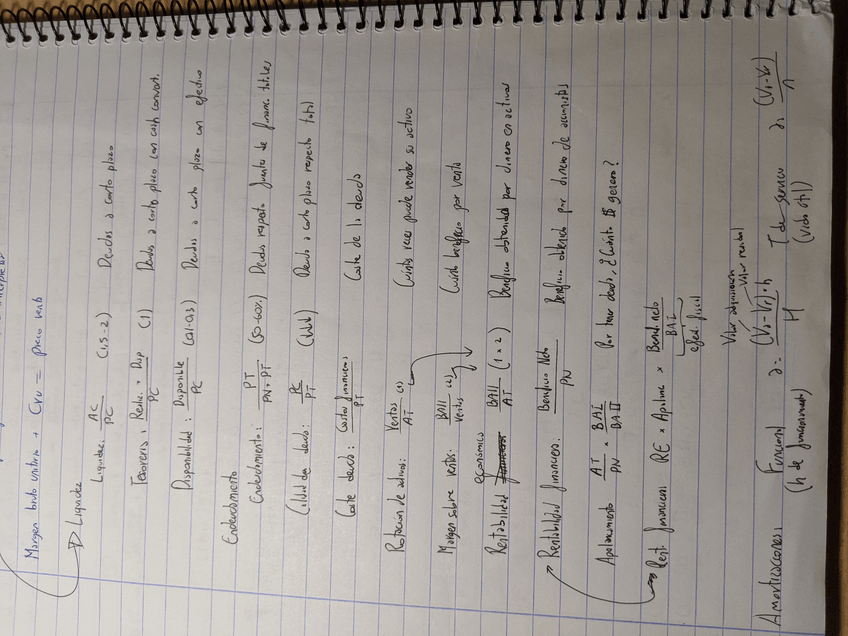 Margen bruto unitario + Cvu = precio venta
Liquidez
Liquidez: AC/PC (1,5-2) Deudas a corto plazo
Tesorería: Realiz. + Disp/PC (1) Deudas a corto plazo con cash convert.
Disponibilidad: Disponible/PC (0,1-0,3) Deudas a corto plazo con efectivo
Endeudamiento
Endeudamiento: PT/PN+PT (50-60%) Deudas respecto fuentes de financ. totales
Calidad deuda: PC/PT Deuda a corto plazo respecto total
Coste deuda: Gastos financieros/PT Coste de la deuda
Rotación de activos: Ventas/AT (1) Cuántas veces puede vender su activo
Margen sobre ventas: BAII/Ventas (2) Cuánto beneficio por venta
Rentabilidad económica BAII/AT (1 x 2) Beneficio obtenido por dinero en activos
Rentabilidad financiera: Beneficio Neto/PN Beneficio obtenido por dinero de accionistas
Apalancamiento AT/PN x BAI/BAII Por tener deuda, ¿Cuánto genero?
Rent. financiera RE x Apalanc x Benef. neto/BAI
efect. fiscal
Valor adquisición
Valor residual
Amortizaciones: Funcional a: (Va-Vr)·h/H T de servicio a: (Va-Vr)/n
(h de funcionamiento) (vida útil)